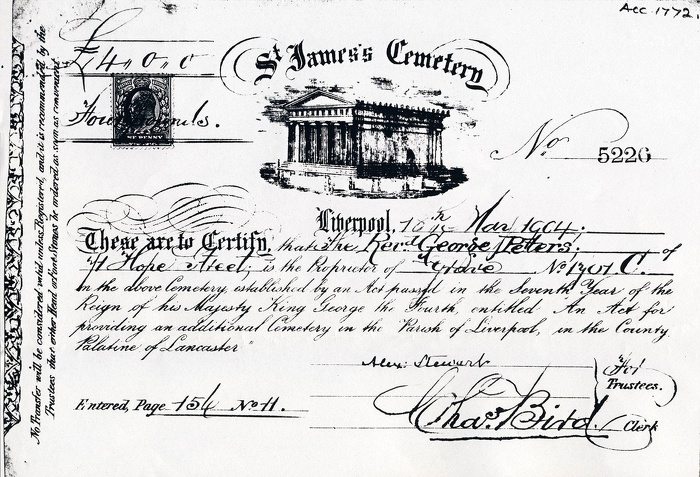 Acc. 1772.
£4,,0,,0
St James's Cemetery
Four Pounds.
No 5226
Liverpool, 10th Mar 1904.
These are to Certify, that the Revd George Peters. of
Hope Street, is the Proprietor of a Grave No 1701 C.
in the above Cemetery established by an Act passed in the Seventh Year of the
Reign of his Majesty King George the Fourth, entitled "An Act for
providing an additional Cemetery in the Parish of Liverpool, in the County
Palatine of Lancaster"
Alex. Stewart
For Trustees.
Entered, Page 156 No 11.
Chas. Bird. Clerk
No Transfer will be considered valid unless Registered, and it is recommended by the
Trustees that either Head or Foot Stones be ordered as soon as convenient.